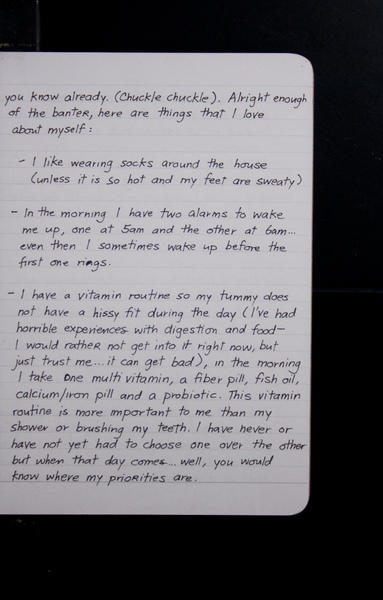 you know already. (Chuckle chuckle). Alright enough
of the banter, here are things that I love
about myself:
- I like wearing socks around the house
(unless it is so hot and my feet are sweaty)
- In the morning I have two alarms to wake
me up, one at 5am and the other at 6am...
even then I sometimes wake up before the
first one rings.
- I have a vitamin routine so my tummy does
not have a hissy fit during the day (I've had
horrible experiences with digestion and food-
I would rather not get into it right now, but
just trust me... it can get bad), in the morning
I take one multi vitamin, a fiber pill, fish oil,
calcium/iron pill and a probiotic. This vitamin
routine is more important to me than my
shower or brushing my teeth. I have never or
have not yet had to choose one over the other
but when that day comes... well, you would
know where my priorities are.